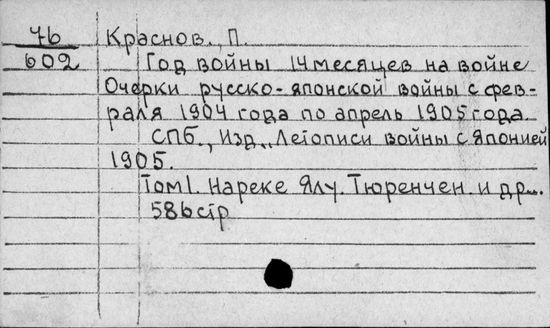 76 Краснов., П.
602 Год войны 14 месяцев на войне
Очерки русско-японской войны с фев-
раля 1904 года по апрель 1905 года.
СПб., Изд., Летописи войны с Японией
1905.
Том 1. На реке Ялу. Тюренчен. и др...
586 стр